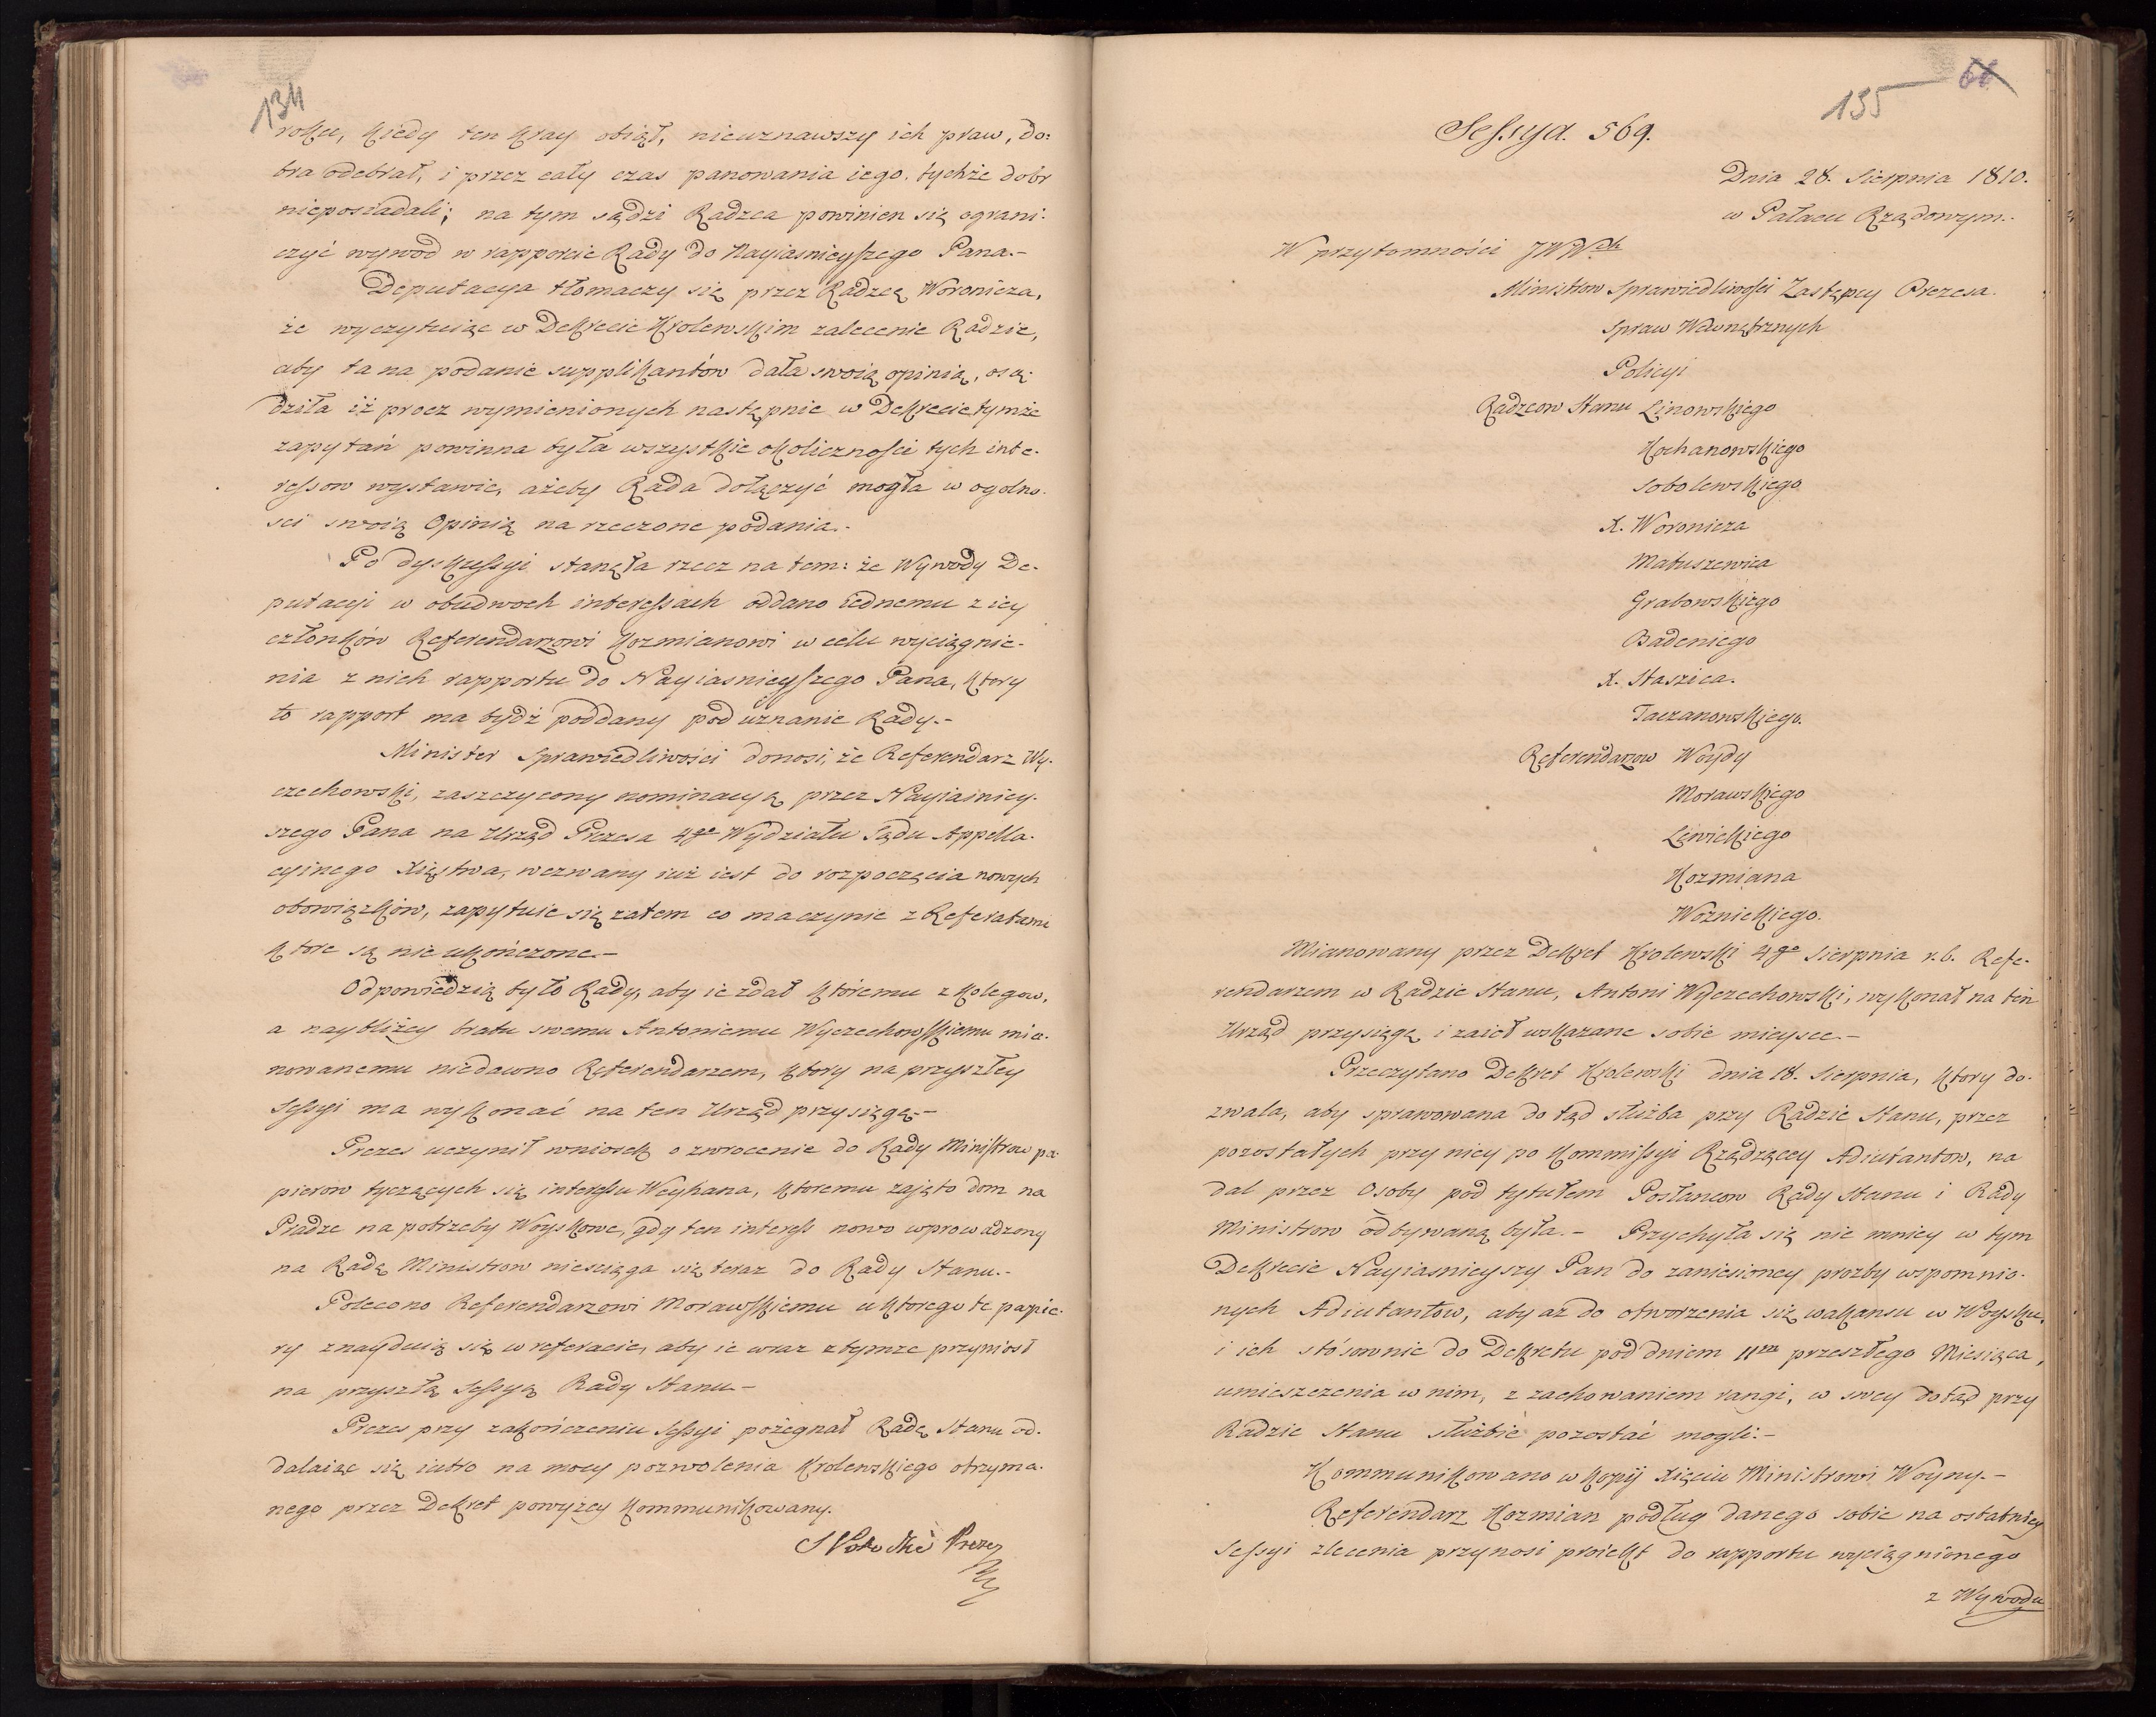 134
roku, kiedy ten kray obiął, nieuznawszy ich praw, do:
bra odebrał, i przez cały czas panowania iego, tychże dobr
nieposiadali; na tym sądzi Radzca powinien się ograni-
czyć wywod w rapporcie Rady do Nayiasnieyszego Pana.-
Deputacya tłomaczy się przez Radzcę Woronicza,
że wyczytuiąc w Dekrecie Krolewskim zalecenie Radzie,
aby ta na podanie supplikantów dała swoią opinią, osą-
dziła iż procz wymienionych następnie w Dekrecie tymże
zapytań powinna była wszystkie okoliczności tych inte-
ressow wystawić, ażeby Rada dołączyć mogła w ogolno-
sci swoią Opinią na rzeczone podania.-
Po dyskussyi stanęła rzecz na tem: że Wywody De-
putacyi w obudwoch interessach oddano iednemu z iey
członków Referendarzowi Kozmianowi w celu wyciągnie-
nia z nich rapportu do Nayiasnieyszego Pana, ktory
to rapport ma bydź poddany pod uznanie Rady.-
Minister Sprawiedliwości donosi, że Referendarz Wy-
czechowski, zaszczycony nominacyą przez Nayiasniey-
szego Pana na Urząd Prezesa 4go Wydziału Sądu Appella-
cyinego Xięstwa, wezwany iuż iest do rozpoczęcia nowych
obowiązków, zapytuie się zatem co ma czynic z Referatami
ktore są nie ukończone.-
Odpowiedzią było Rady, aby ie zdał któremu z kolegow,
a naybliżey bratu swemu Antoniemu Wyczechowskiemu mia-
nowanemu niedawno Referendarzem, ktory na przyszłey
Sessyi ma wykonać na ten Urząd przysięgę.-
Prezes uczynił wniosek o zwrocenie do Rady Ministrow pa-
pierow tyczących się interessu Weyhana, ktoremu zajęto dom na
Pradze na potrzeby Woyskowe, gdy ten interess nowo wprowadzony
na Radę Ministrow niesciąga się teraz do Rady Stanu.-
Polecono Referendarzowi Morawskiemu u ktorego te papie-
ry znayduią się w referacie, aby ie wraz z tymże przyniosł
na przyszłą Sessyą Rady Stanu.-
Prezes przy zakończeniu Sessyi pożegnał Radę Stanu od-
dalaiąc się iutro na mocy pozwolenia Krolewskiego otrzyma-
nego przez Dekret powyżey kommunikowany.
S Potocki Prezes
135
66
Sessya. 569.
Dnia 28. Sierpnia 1810.
w Pałacu Rządowym.
W przytomności JWWch
Ministrow Sprawiedliwości Zastępcy Prezesa.
Spraw Wewnętrznych
Policyi
Radzcow Stanu Linowskiego
Kochanowskiego
Sobolewskiego
X. Woronicza
Matuszewica
Grabowskiego
Badeniego
X. Staszica.
Taczanowskiego.
Referendarzow Woydy
Morawskiego
Lewickiego
Kozmiana
Woznickiego.
Mianowany przez Dekret Krolewski 4go Sierpnia r.b. Refe-
rendarzem w Radzie Stanu, Antoni Wyczechowski, wykonał na ten
Urząd przysięgę i zaiął wskazane sobie mieysce.-
Przeczytano Dekret Krolewski dnia 18. Sierpnia, ktory do-
zwala, aby sprawowana do tąd służba przy Radzie Stanu, przez
pozostałych przy niey po Kommissyi Rządzącey Adiutantow, na
dal przez Osoby pod tytułem Posłancow Rady Stanu i Rady
Ministrow odbywaną była.- Przychyla się nie mniey w tym
Dekrecie Nayiasnieyszy Pan do zaniesioney prozby wspomnio-
nych Adiutantow, aby aż do otworzenia się wakansu w Woysku,
i ich stósownie do Dekretu pod dniem 11m przeszłego Miesiąca,
umieszczenia w nim, z zachowaniem rangi, w swey dotąd przy
Radzie Stanu służbie pozostać mogli.-
Kommunikowano w kopij Xięciu Ministrowi Woyny.-
Referendarz Kozmian podług danego sobie na ostatniey
Sessyi zlecenia przynosi proiekt do rapportu wyciągnionego
z Wywodu